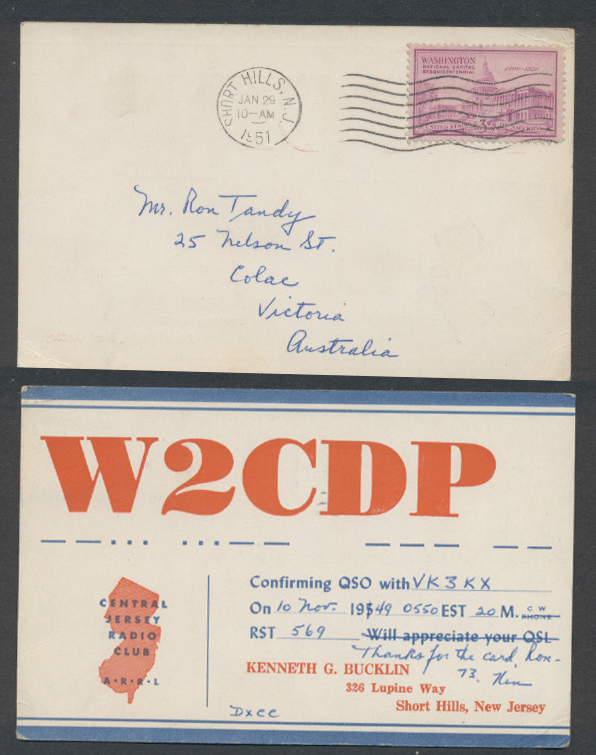 SHORT HILLS, N.J.
JAN 29
10-AM
1951
WASHINGTON
NATIONAL CAPITAL
SESQUICENTENNIAL
Mr. Ron Tandy
25 Nelson St.
Colac
Victoria
Australia
W2CDP
CENTRAL
JERSEY
RADIO
CLUB
A·R·R·L
Confirming QSO with VK3KX
On 10 Nov. 1949 0550 EST 20 M. CW PHONE
RST 569 Will appreciate your QSL
Thanks for the card, Ron-
73, Ken
KENNETH G. BUCKLIN
326 Lupine Way
Short Hills, New Jersey
DXCC